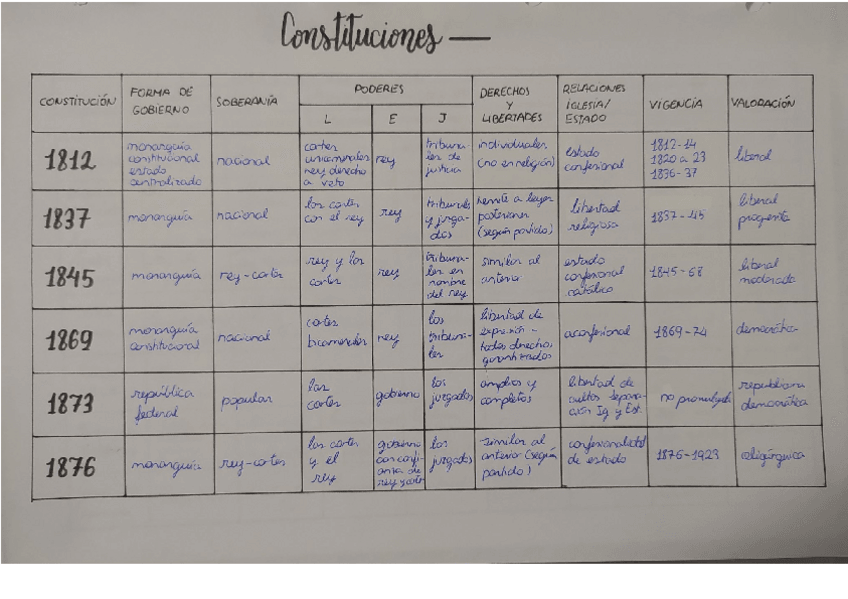 Constituciones —
CONSTITUCIÓN
FORMA DE
GOBIERNO
SOBERANÍA
PODERES
L
E
J
DERECHOS
Y
LIBERTADES
RELACIONES
IGLESIA/
ESTADO
VIGENCIA
VALORACIÓN
1812
monarquía
constitucional
estado
centralizado
nacional
cortes
unicamerales
rey derecho
a veto
rey
tribuna-
les de
justicia
individuales
(no en religión)
estado
confesional
1812-14
1820 a 23
1836-37
liberal
1837
monarquía
nacional
las cortes
con el rey
rey
tribunales
y juzga-
dos
remite a leyes
posteriores
(según partido)
libertad
religiosa
1837-45
liberal
progresista
1845
monarquía
rey-cortes
rey y las
cortes
rey
tribuna-
les en
nombre
del rey
similar al
anterior
estado
confesional
católico
1845-68
liberal
moderada
1869
monarquía
constitucional
nacional
cortes
bicamerales
rey
los
tribuna-
les
libertad de
expresión -
todos derechos
garantizados
aconfesional
1869-74
democrática
1873
república
federal
popular
las
cortes
gobierno
los
juzgados
amplios y
completos
libertad de
cultos separa-
ción Ig y Est.
no promulgada
republicana
democrática
1876
monarquía
rey-cortes
las cortes
y el
rey
gobierno
con confi-
anza de
rey y cortes
los
juzgados
similar al
anterior (según
partido)
confesionalidad
de estado
1876-1923
oligárquica